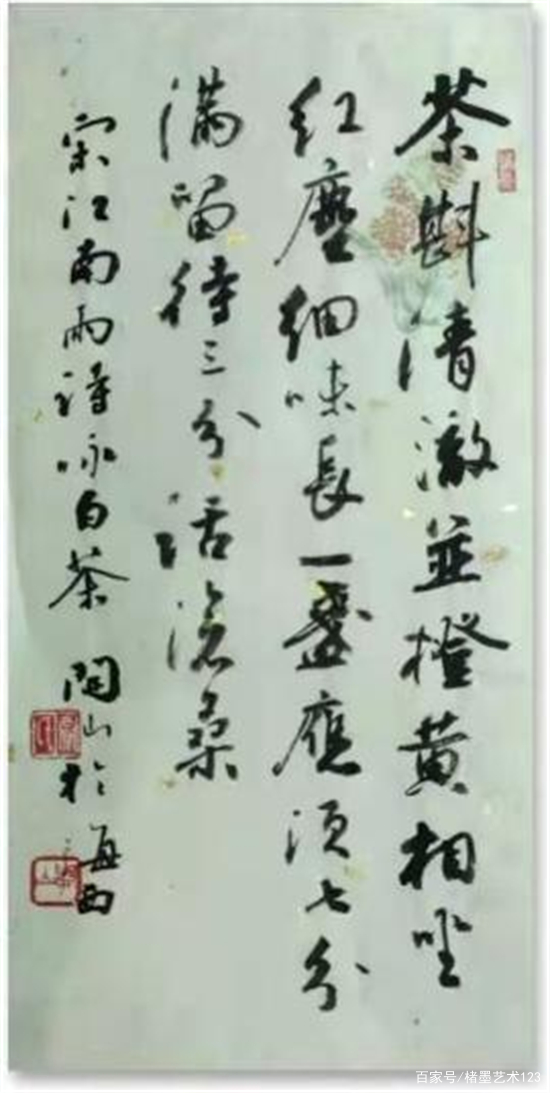 茶斟清澈並橙黄相坐
红塵细味長一盞應須七分
满留待三分话滄桑
宋江南雨诗咏白茶 関山於海西
百家号/楮墨艺术123